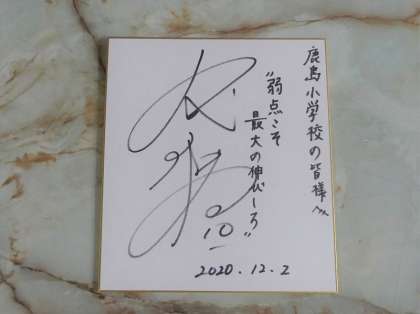 鹿島小学校の皆様へ
"弱点こそ
最大の伸びしろ"
10
2020.12.2